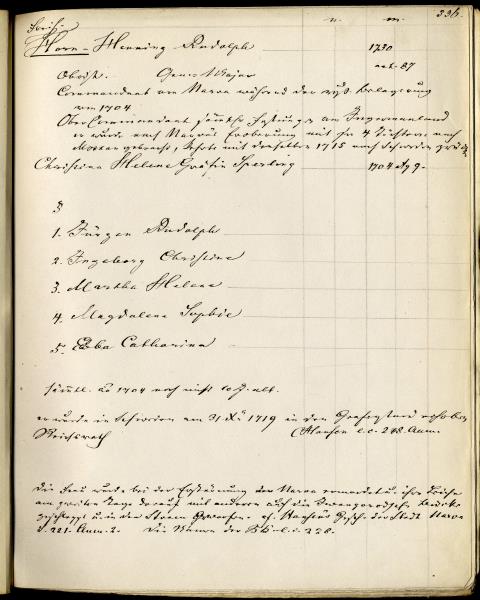 n. m. 336.
Horn - Henning Rudolph 1730
aet. 87
Obrist. General Major
Commandant von Narva während der russ. Belagerung
von 1704
Ober Commandant sämmtl. Festungen von Ingermanland
er wurde nach Narvas Eroberung mit 4 Töchtern nach
Moskau gebracht, kehrte mit denselben 1715 nach Schweden zurück
Christina Helene Gräfin Sperling 1704 Aug 9.
1. Jürgen Rudolph
2. Ingeborg Christine
3. Martha Helene
4. Magdalena Sophie
5. Ebba Catharina
sämmtl. 1704 noch nicht 10 J. alt.
er wurde in Schweden am 31 1719 in den Grafenstand erhoben
Reichsrath (Hansen l. c. 248. Anm.
die Frau wurde bei der Erstürmung von Narva ermordet u. ihre Leiche
am zweiten Tage darauf mit anderen auf die Iwangorodsche Brücke
geschleppt u. in den Strom geworfen. cf. Hansens Gesch. der Stadt Narva
S. 221. Anm. 2. Die Namen der l. c. 228.